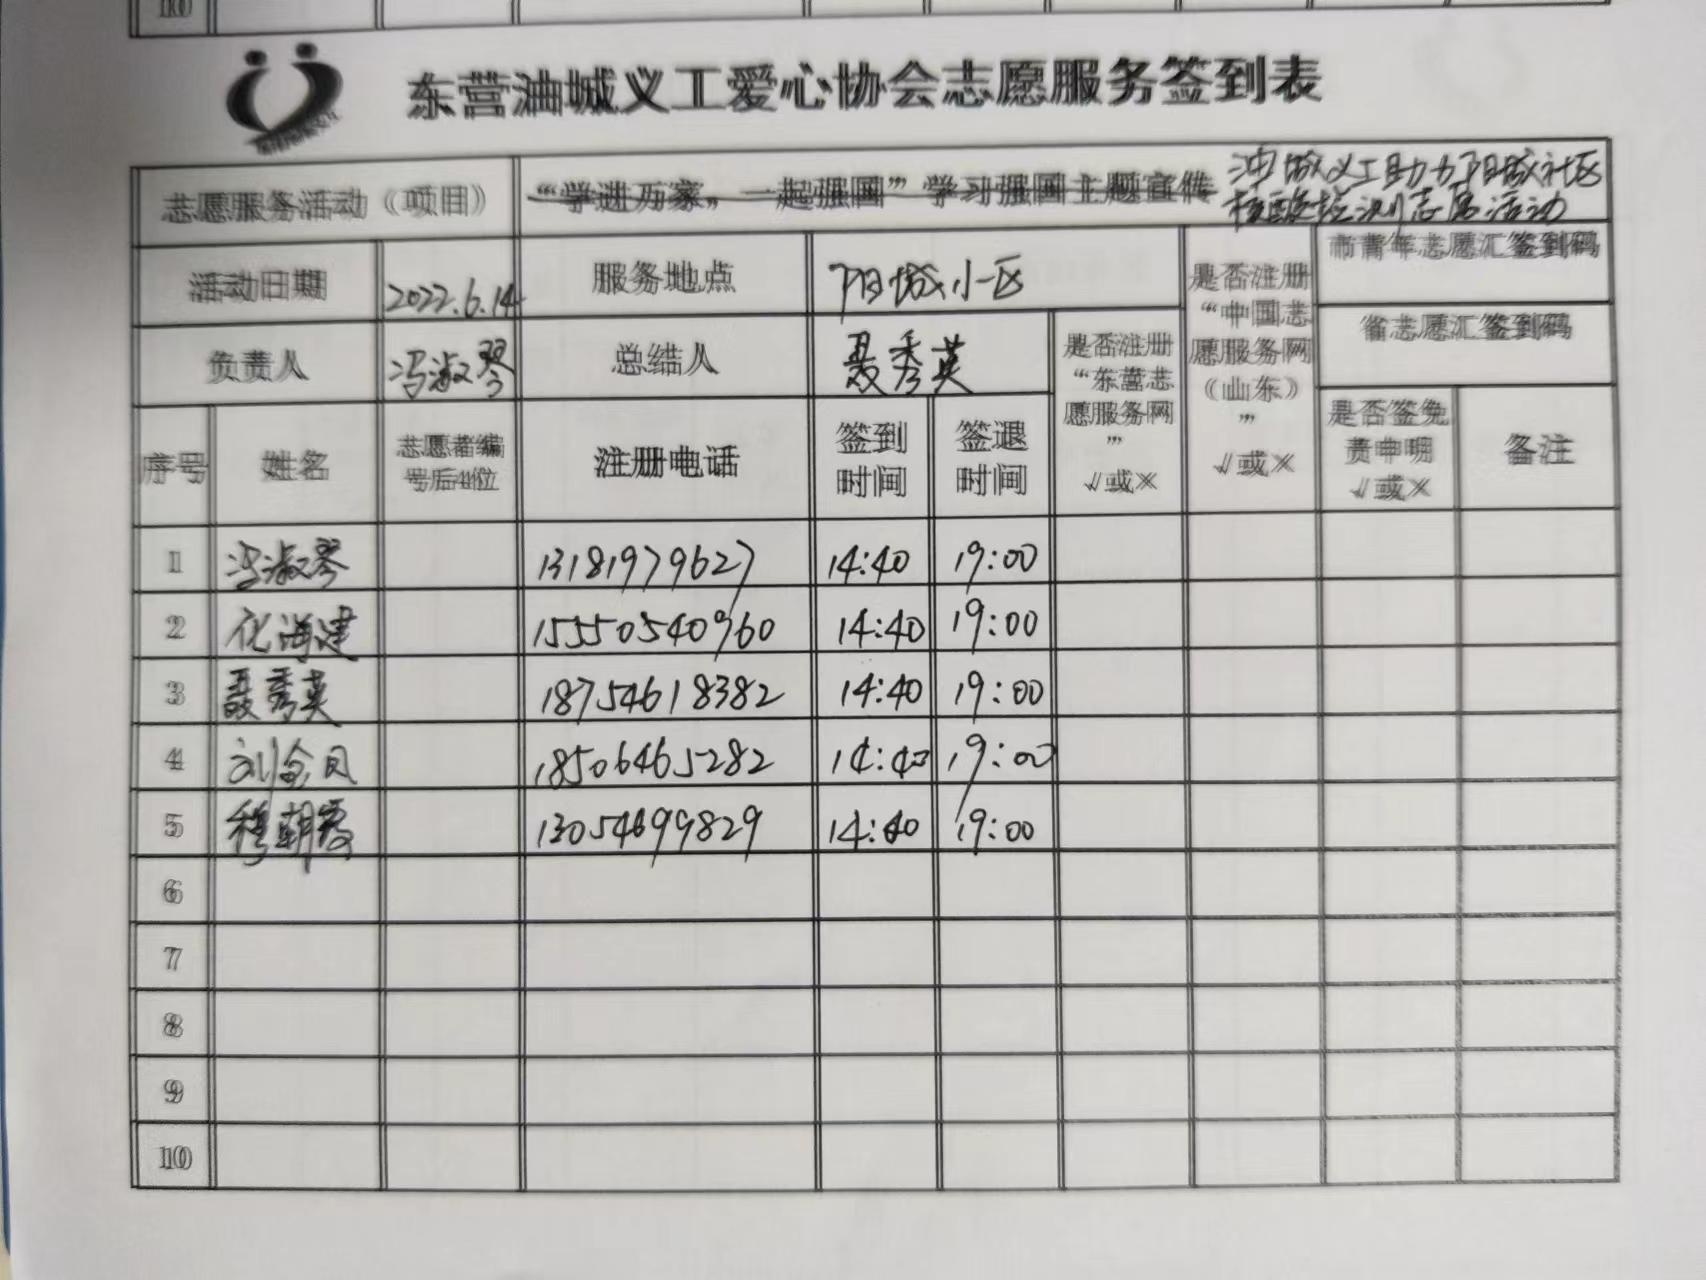 10
东营油城义工爱心协会志愿服务签到表
志愿服务活动（项目） “学进万家，一起强国”学习强国主题宣传 油城义工助力阳城社区
核酸检测志愿活动
活动日期 2022.6.14 服务地点 阳城小区 是否注册“中国志愿服务网（山东）” √或× 市青年志愿汇签到码
省志愿汇签到码
负责人 冯淑琴 总结人 聂秀英 是否注册“东营志愿服务网” √或×
序号 姓名 志愿者编号后4位 注册电话 签到时间 签退时间 是否签免责申明 √或× 备注
1 冯淑琴 13181979627 14:40 19:00
2 化海建 15550540960 14:40 19:00
3 聂秀英 18754618382 14:40 19:00
4 刘金凤 18506465282 14:40 19:00
5 穆朝霞 13054699829 14:40 19:00
6
7
8
9
10